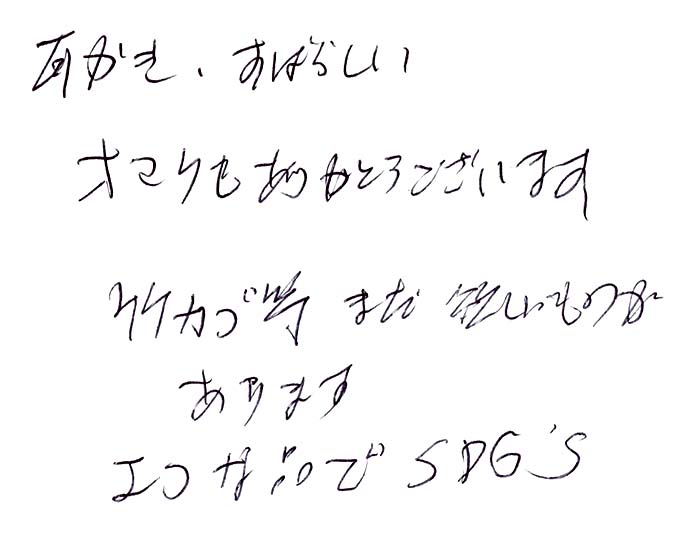 耳かき、すばらしい
オマケもありがとうございます
竹カゴ等 まだ 欲しいものが
あります
エコな品で SDG'S